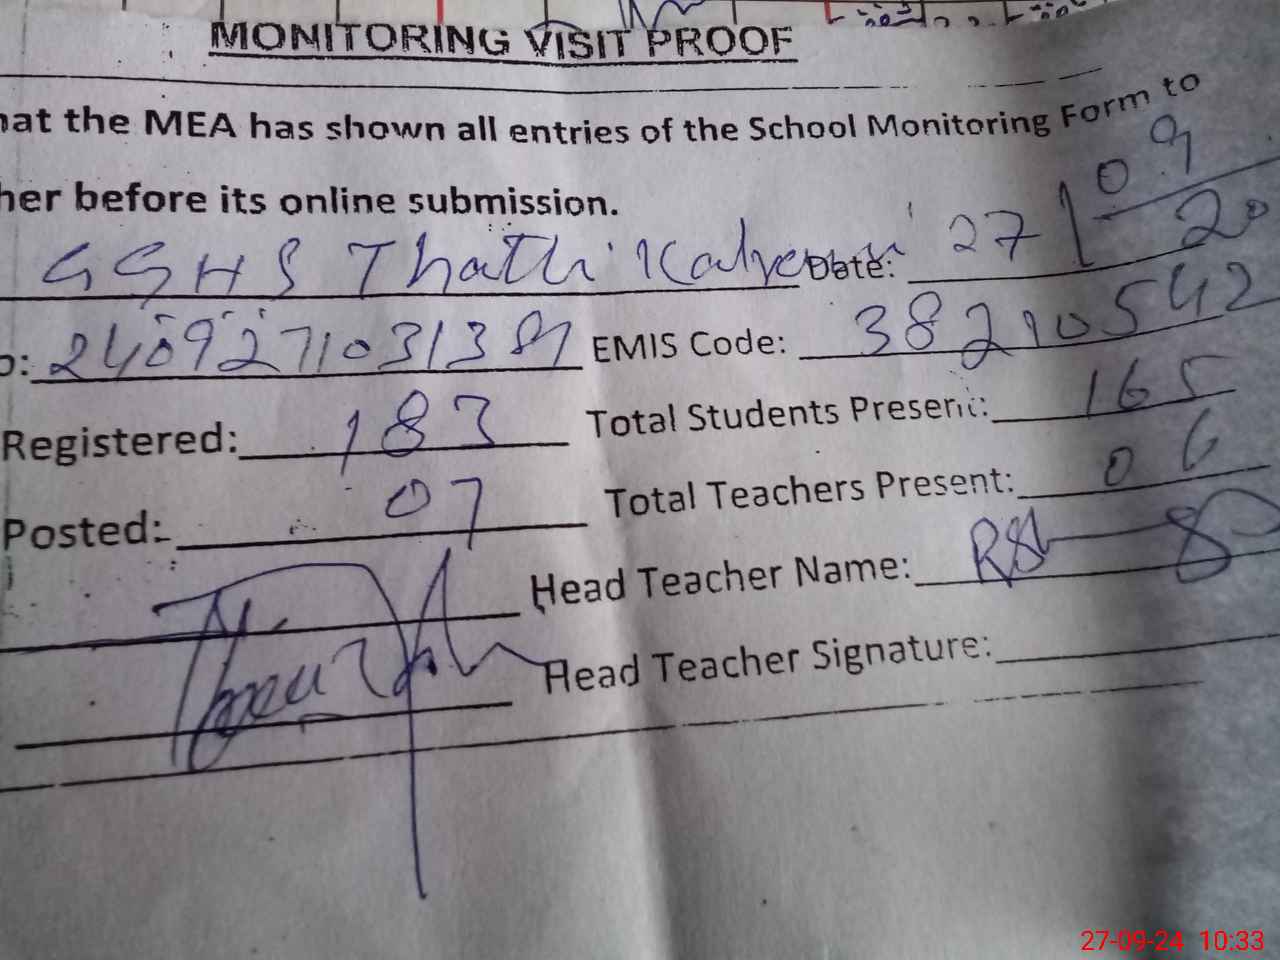 MONITORING VISIT PROOF
hat the MEA has shown all entries of the School Monitoring Form to
her before its online submission.
GGHS Thathi Date: 27/09/20
o: 240927103138 EMIS Code: 38210542
Registered: 183 Total Students Present: 165
Posted: 07 Total Teachers Present: 06
Head Teacher Name:
Head Teacher Signature:
27-09-24 10:33